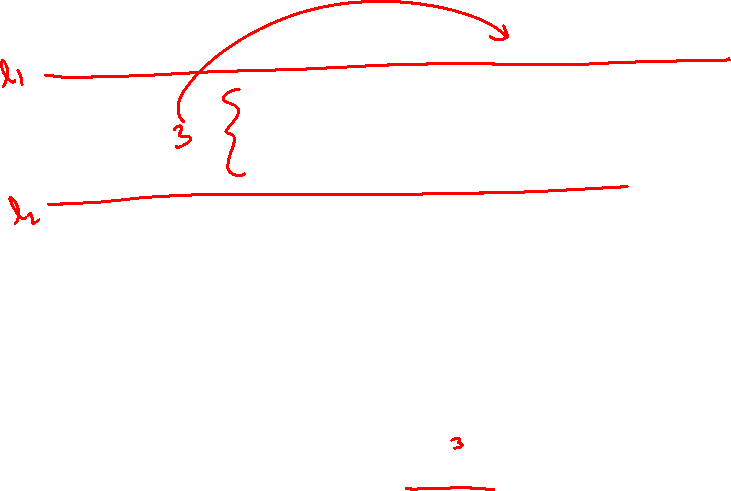 l1
3
l2
3